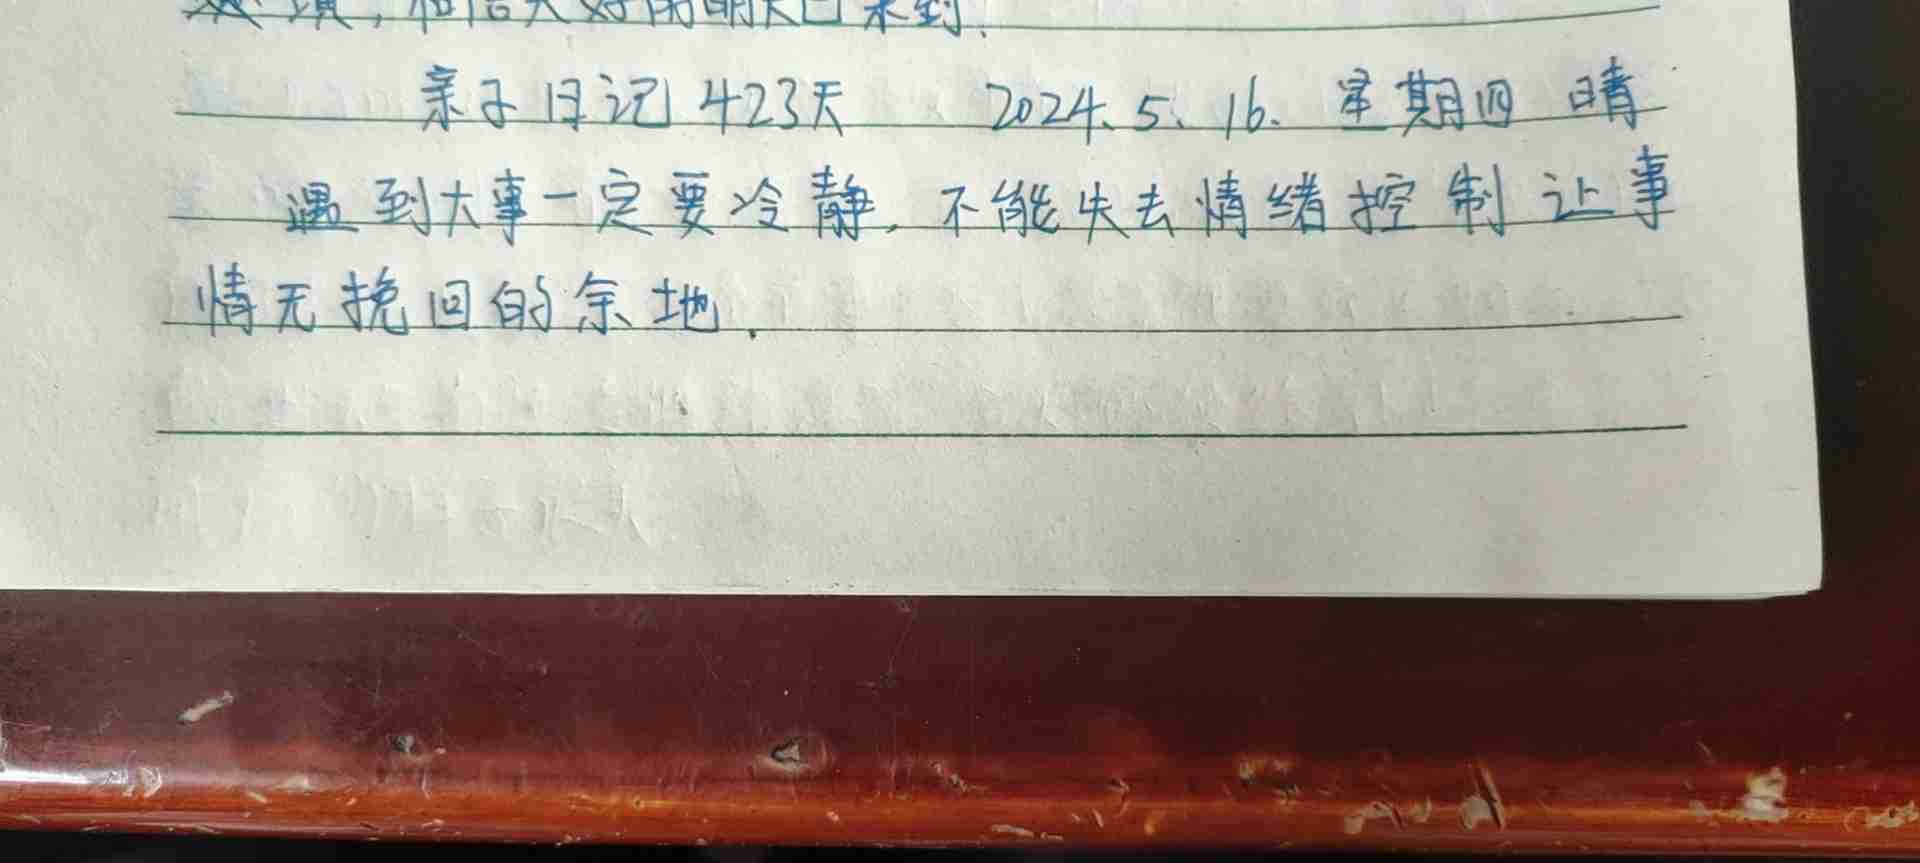 相信美好的明天已来到.
亲子日记423天 2024.5.16. 星期四 晴
遇到大事一定要冷静,不能失去情绪控制让事
情无挽回的余地.